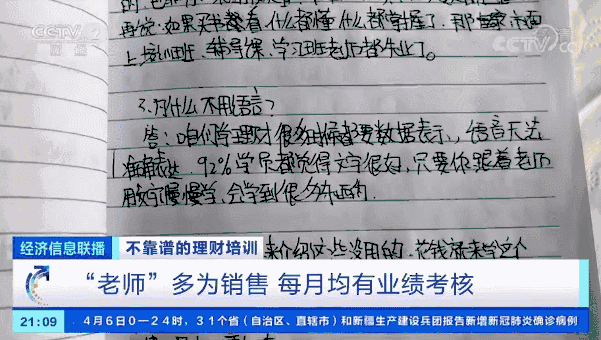 CCTV 2 财经
CCTV 9 央视
再说,如果买书都看什么都懂什么都掌握了,那世界市面
上培训班、辅导课、学习班老师都失业了。
3、为什么不用语言?
答:咱们学理财很多时候都要数据表示,语音无法
准确表达,92%学员都觉得文字很好,只要你跟着老师
用文字慢慢学,会学到很多东西的。
来介绍这些没用的,花钱就来学这个
经济信息联播
不靠谱的理财培训
“老师”多为销售 每月均有业绩考核
21:09
4月6日0—24时,31个省(自治区、直辖市)和新疆生产建设兵团报告新增新冠肺炎确诊病例